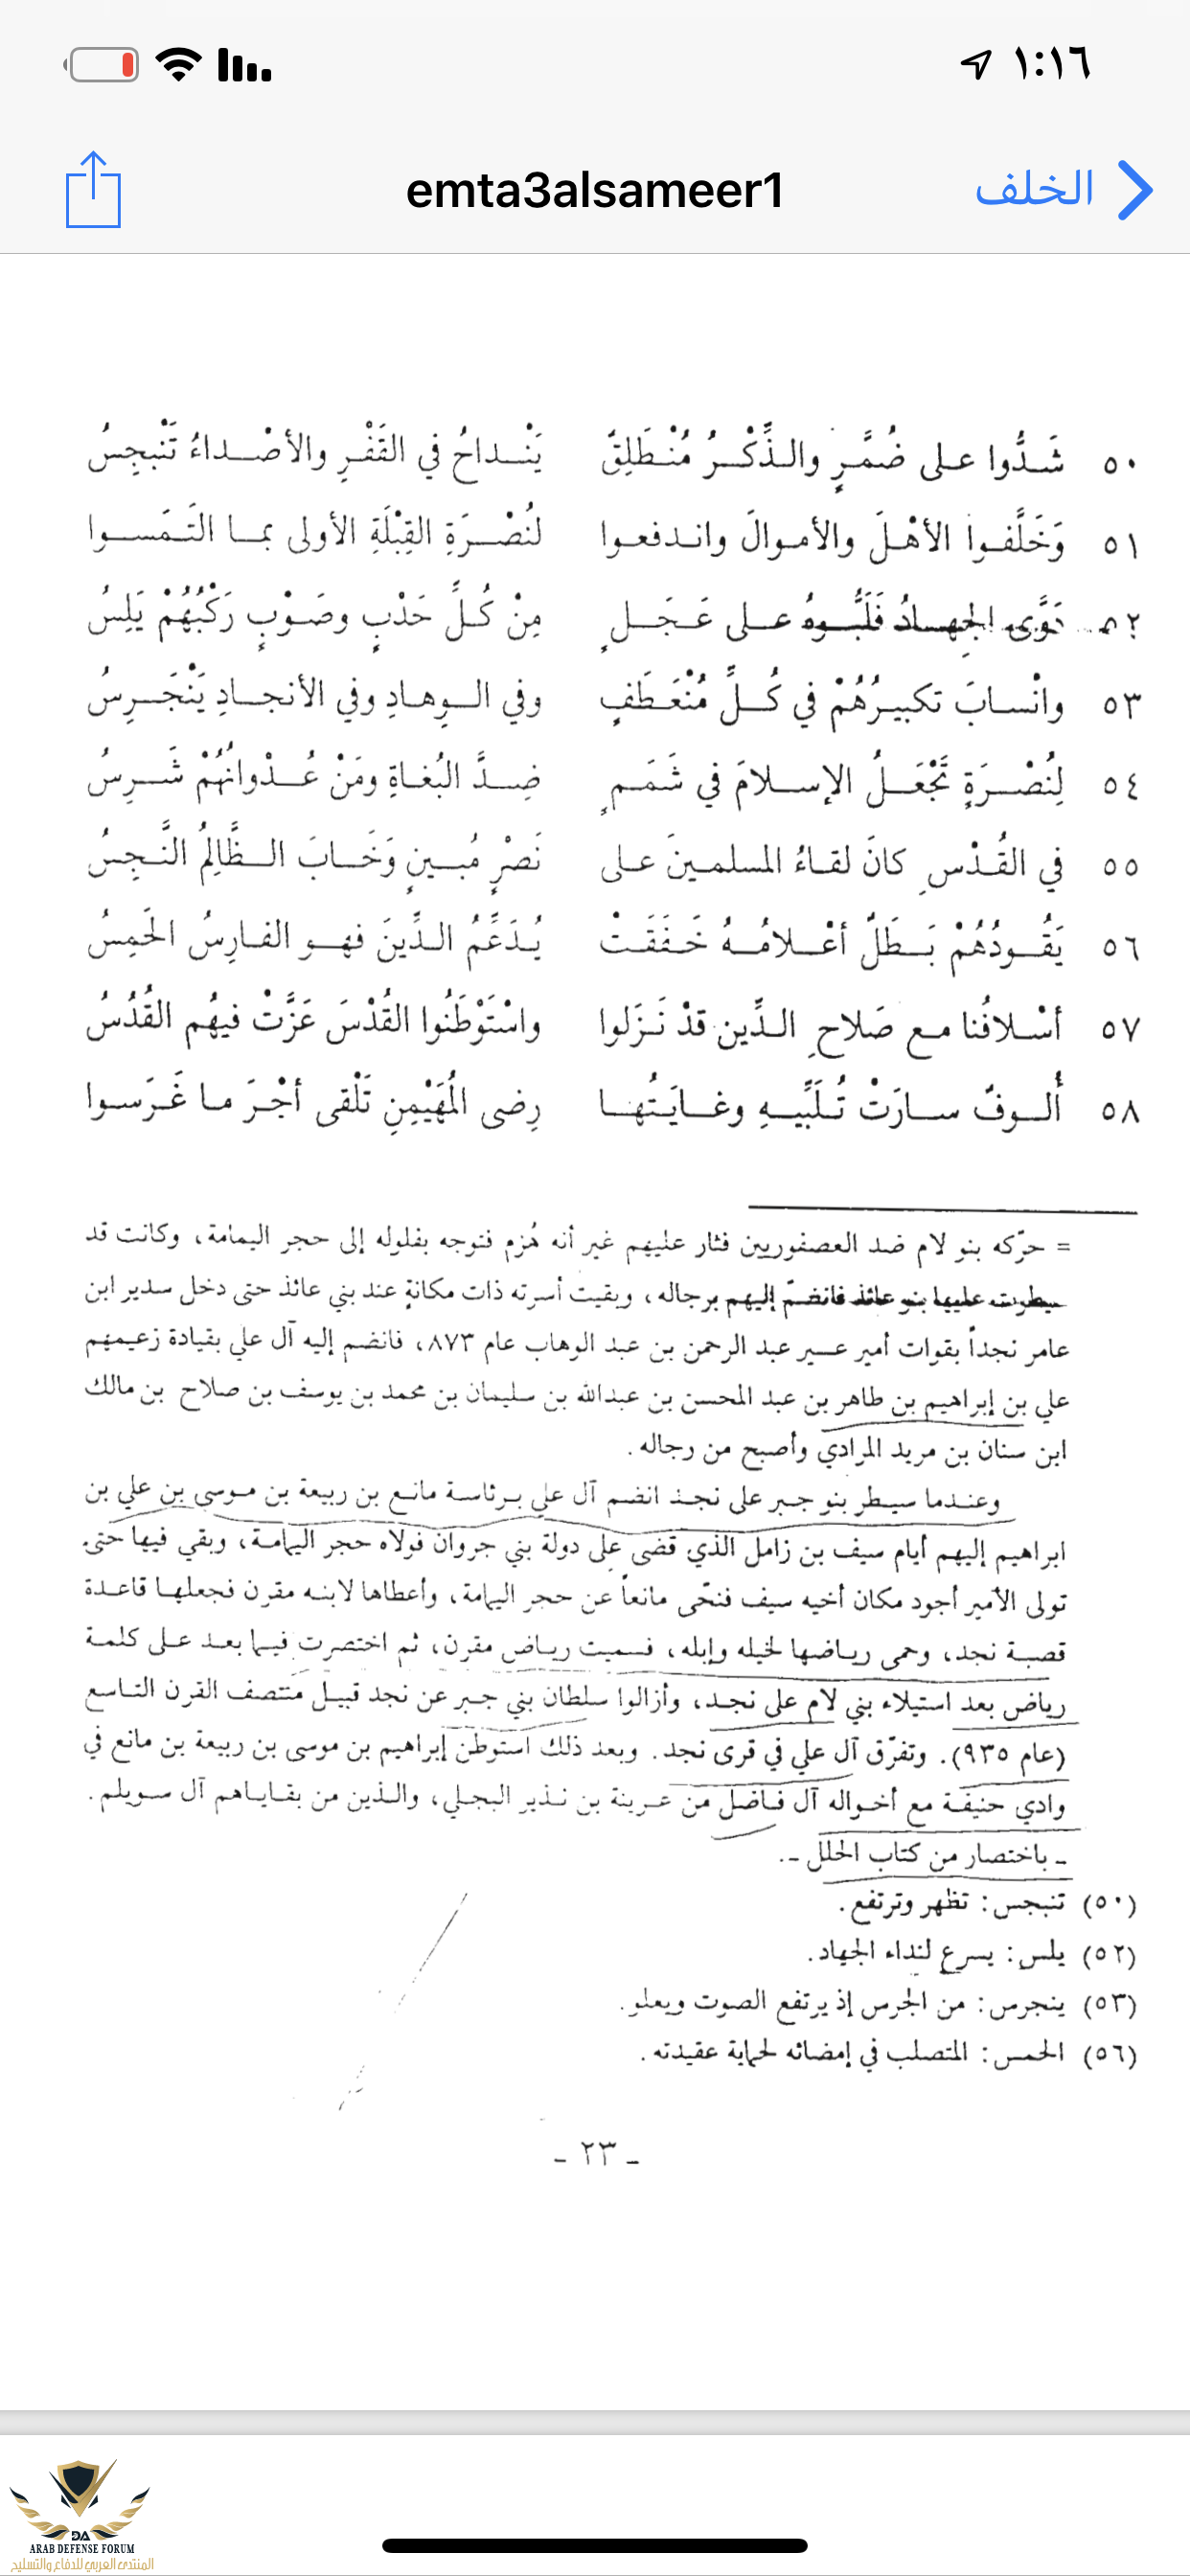 ١:١٦
الخلف
emta3alsameer1
٥٠ شَدُّوا على ضُمَّرٍ والذِّكْرُ مُنْطَلِقٌ يَنْداحُ في القَفْرِ والأصْداءُ تَنْبجِسُ
٥١ وَخَلَّفوا الأهْلَ والأموالَ واندفعوا لنُصْرَةِ القِبْلَةِ الأولى بما التَمَسوا
٥٢ دَوَّى الجهادُ فَلَبُّوهُ على عَجَلٍ مِنْ كُلِّ حَدْبٍ وصَوْبٍ رَكْبُهُمْ يَلِسُ
٥٣ وانْسابَ تكبيرُهُمْ في كُلِّ مُنْعَطَفٍ وفي الوِهادِ وفي الأنجادِ يَنْجَرِسُ
٥٤ لِنُصْرَةٍ تَجْعَلُ الإسلامَ في شَمَمٍ ضِدَّ البُغاةِ ومَنْ عُدْوانُهُمْ شَرِسُ
٥٥ في القُدْسِ كانَ لقاءُ المسلمينَ على نَصْرٍ مُبينٍ وَخَابَ الظَّالِمُ النَّجِسُ
٥٦ يَقُودُهُمْ بَطَلٌ أعْلامُهُ خَفَقَتْ يُدَعِّمُ الدِّينَ فهو الفارِسُ الحَمِسُ
٥٧ أسْلافُنا مع صَلاحِ الدِّين قدْ نَزَلوا واسْتَوْطَنُوا القُدْسَ عَزَّتْ فيهُم القُدُسُ
٥٨ أُلوفٌ سارَتْ تُلَبِّيهِ وغايَتُها رِضى المُهَيْمِنِ تَلْقى أجْرَ ما غَرَسوا
= حرّكه بنو لام ضد العصفوريين فثار عليهم غير أنه هُزم فتوجه بفلوله إلى حجر اليمامة، وكانت قد
سيطرت عليها بنو عائذ فانضمّ إليهم برجاله، وبقيت أسرته ذات مكانةٍ عند بني عائذ حتى دخل سدير ابن
عامر نجداً بقوات أمير عسير عبد الرحمن بن عبد الوهاب عام ٨٧٣، فانضم إليه آل علي بقيادة زعيمهم
علي بن إبراهيم بن طاهر بن عبد المحسن بن عبدالله بن سليمان بن محمد بن يوسف بن صلاح بن مالك
ابن سنان بن مريد المرادي وأصبح من رجاله.
وعندما سيطر بنو جبر على نجد انضم آل علي برئاسة مانع بن ربيعة بن موسى بن علي بن
ابراهيم إليهم أيام سيف بن زامل الذي قضى على دولة بني جروان فولاه حجر اليمامة، وبقي فيها حتى
تولى الأمير أجود مكان أخيه سيف فنحّى مانعاً عن حجر اليمامة، وأعطاها لابنه مقرن فجعلها قاعدة
قصبة نجد، وحمى رياضها لخيله وإبله، فسميت رياض مقرن، ثم اختصرت فيما بعد على كلمة
رياض بعد استيلاء بني لام على نجد، وأزالوا سلطان بني جبر عن نجد قبيل منتصف القرن التاسع
(عام ٩٣٥). وتفرّق آل علي في قرى نجد. وبعد ذلك استوطن إبراهيم بن موسى بن ربيعة بن مانع في
وادي حنيفة مع أخواله آل فاضل من عرينة بن نذير البجلي، والذين من بقاياهم آل سويلم.
ـ باختصار من كتاب الحلل ـ.
(٥٠) تنبجس: تظهر وترتفع.
(٥٢) يلس: يسرع لنداء الجهاد.
(٥٣) ينجرس: من الجرس إذ يرتفع الصوت ويعلو.
(٥٦) الحمس: المتصلب في إمضائه لحماية عقيدته.
- ٢٣ -
DA
ARAB DEFENSE FORUM
المنتدى العربي للدفاع والتسليح